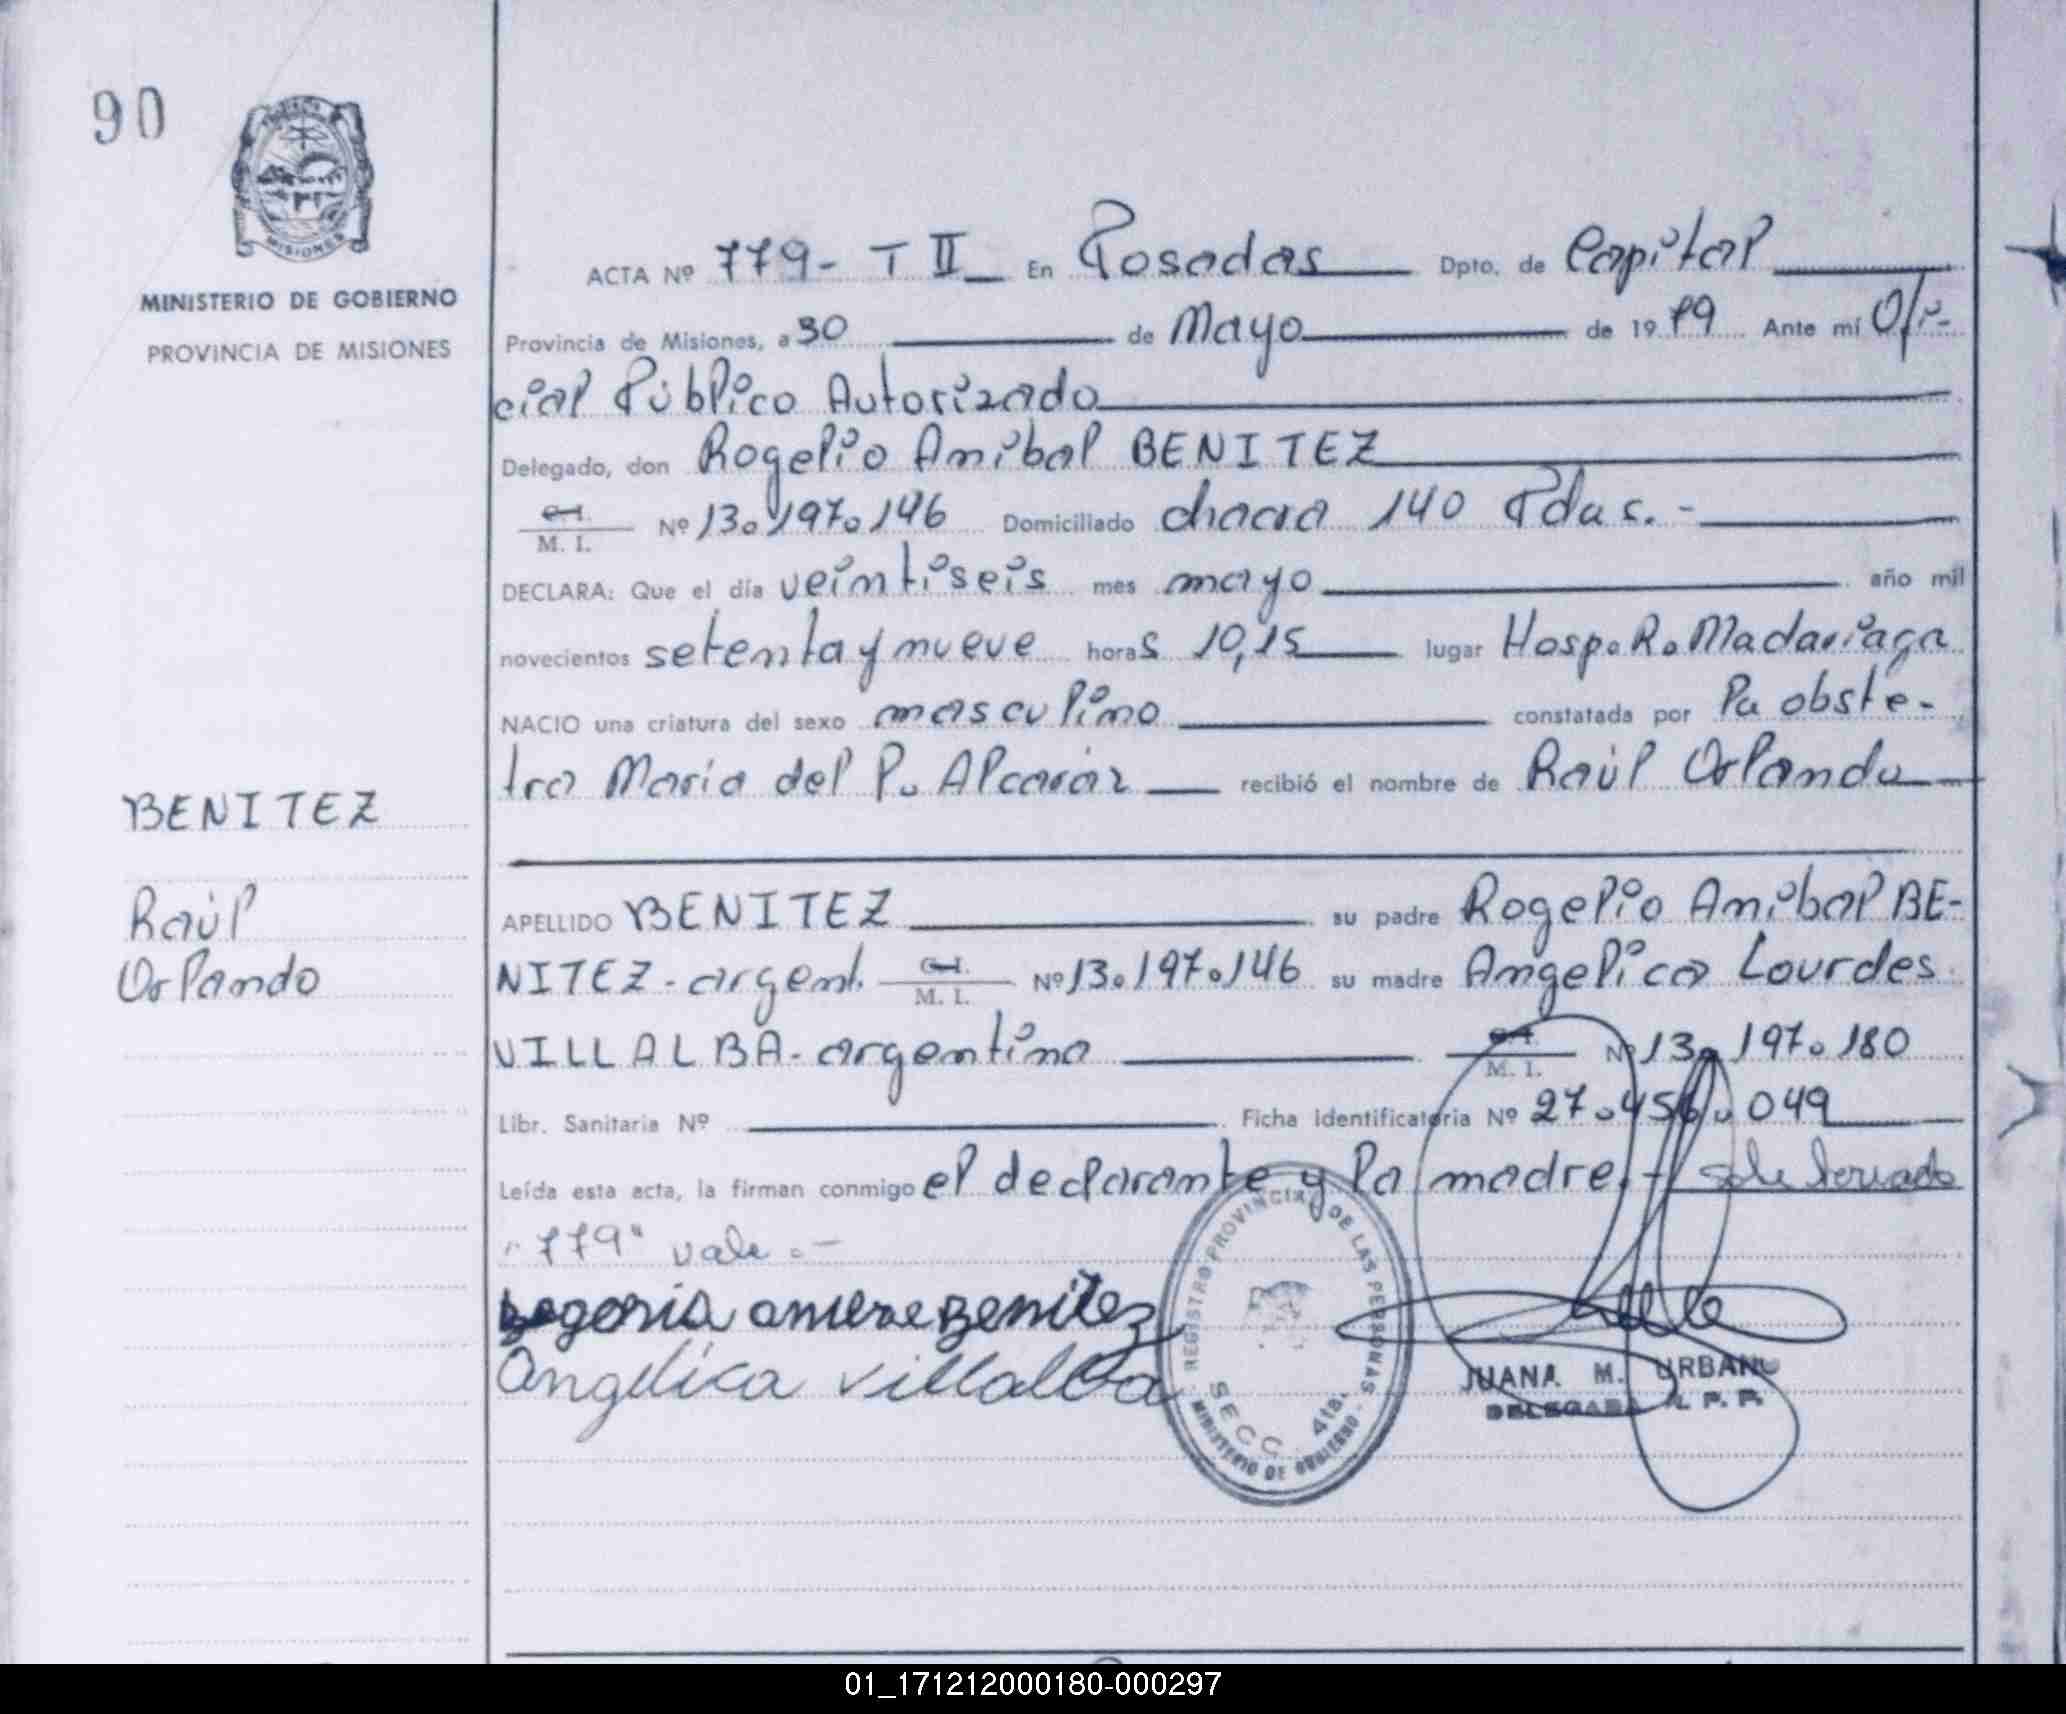 90
MISIONES
MINISTERIO DE GOBIERNO
PROVINCIA DE MISIONES
ACTA Nº 779- T II_ En Posadas Dpto. de Capital
Provincia de Misiones, a 30 de Mayo de 19 79 Ante mí Ofi-
cial Público Autorizado
Delegado, don Rogelio Anibal BENITEZ
C.I.
M. I. Nº 13.197.146 Domiciliado chacra 140 Pdas.-
DECLARA: Que el día veintiseis mes mayo año mil
novecientos setenta y nueve horas 10,15 lugar Hosp. R. Madariaga
NACIO una criatura del sexo masculino constatada por la obste-
tra María del P. Alcaráz recibió el nombre de Raúl Orlando
BENITEZ
Raúl
Orlando
APELLIDO BENITEZ su padre Rogelio Anibal BE-
NITEZ-argent. C.I. M. I. Nº 13.197.146 su madre Angelica Lourdes
VILLALBA-argentina C.I. M. I. Nº 13.197.180
Libr. Sanitaria Nº Ficha Identificatoria Nº 27.456.049
Leída esta acta, la firman conmigo el declarante y la madre.-
"779" vale.-
Benitez
Angelica Villalba
REGISTRO PROVINCIAL DE LAS PERSONAS
SECC. 4ta.
MINISTERIO DE GOBIERNO
JUANA M. URBANO
DELEGADA R. P. P.
01_171212000180-000297